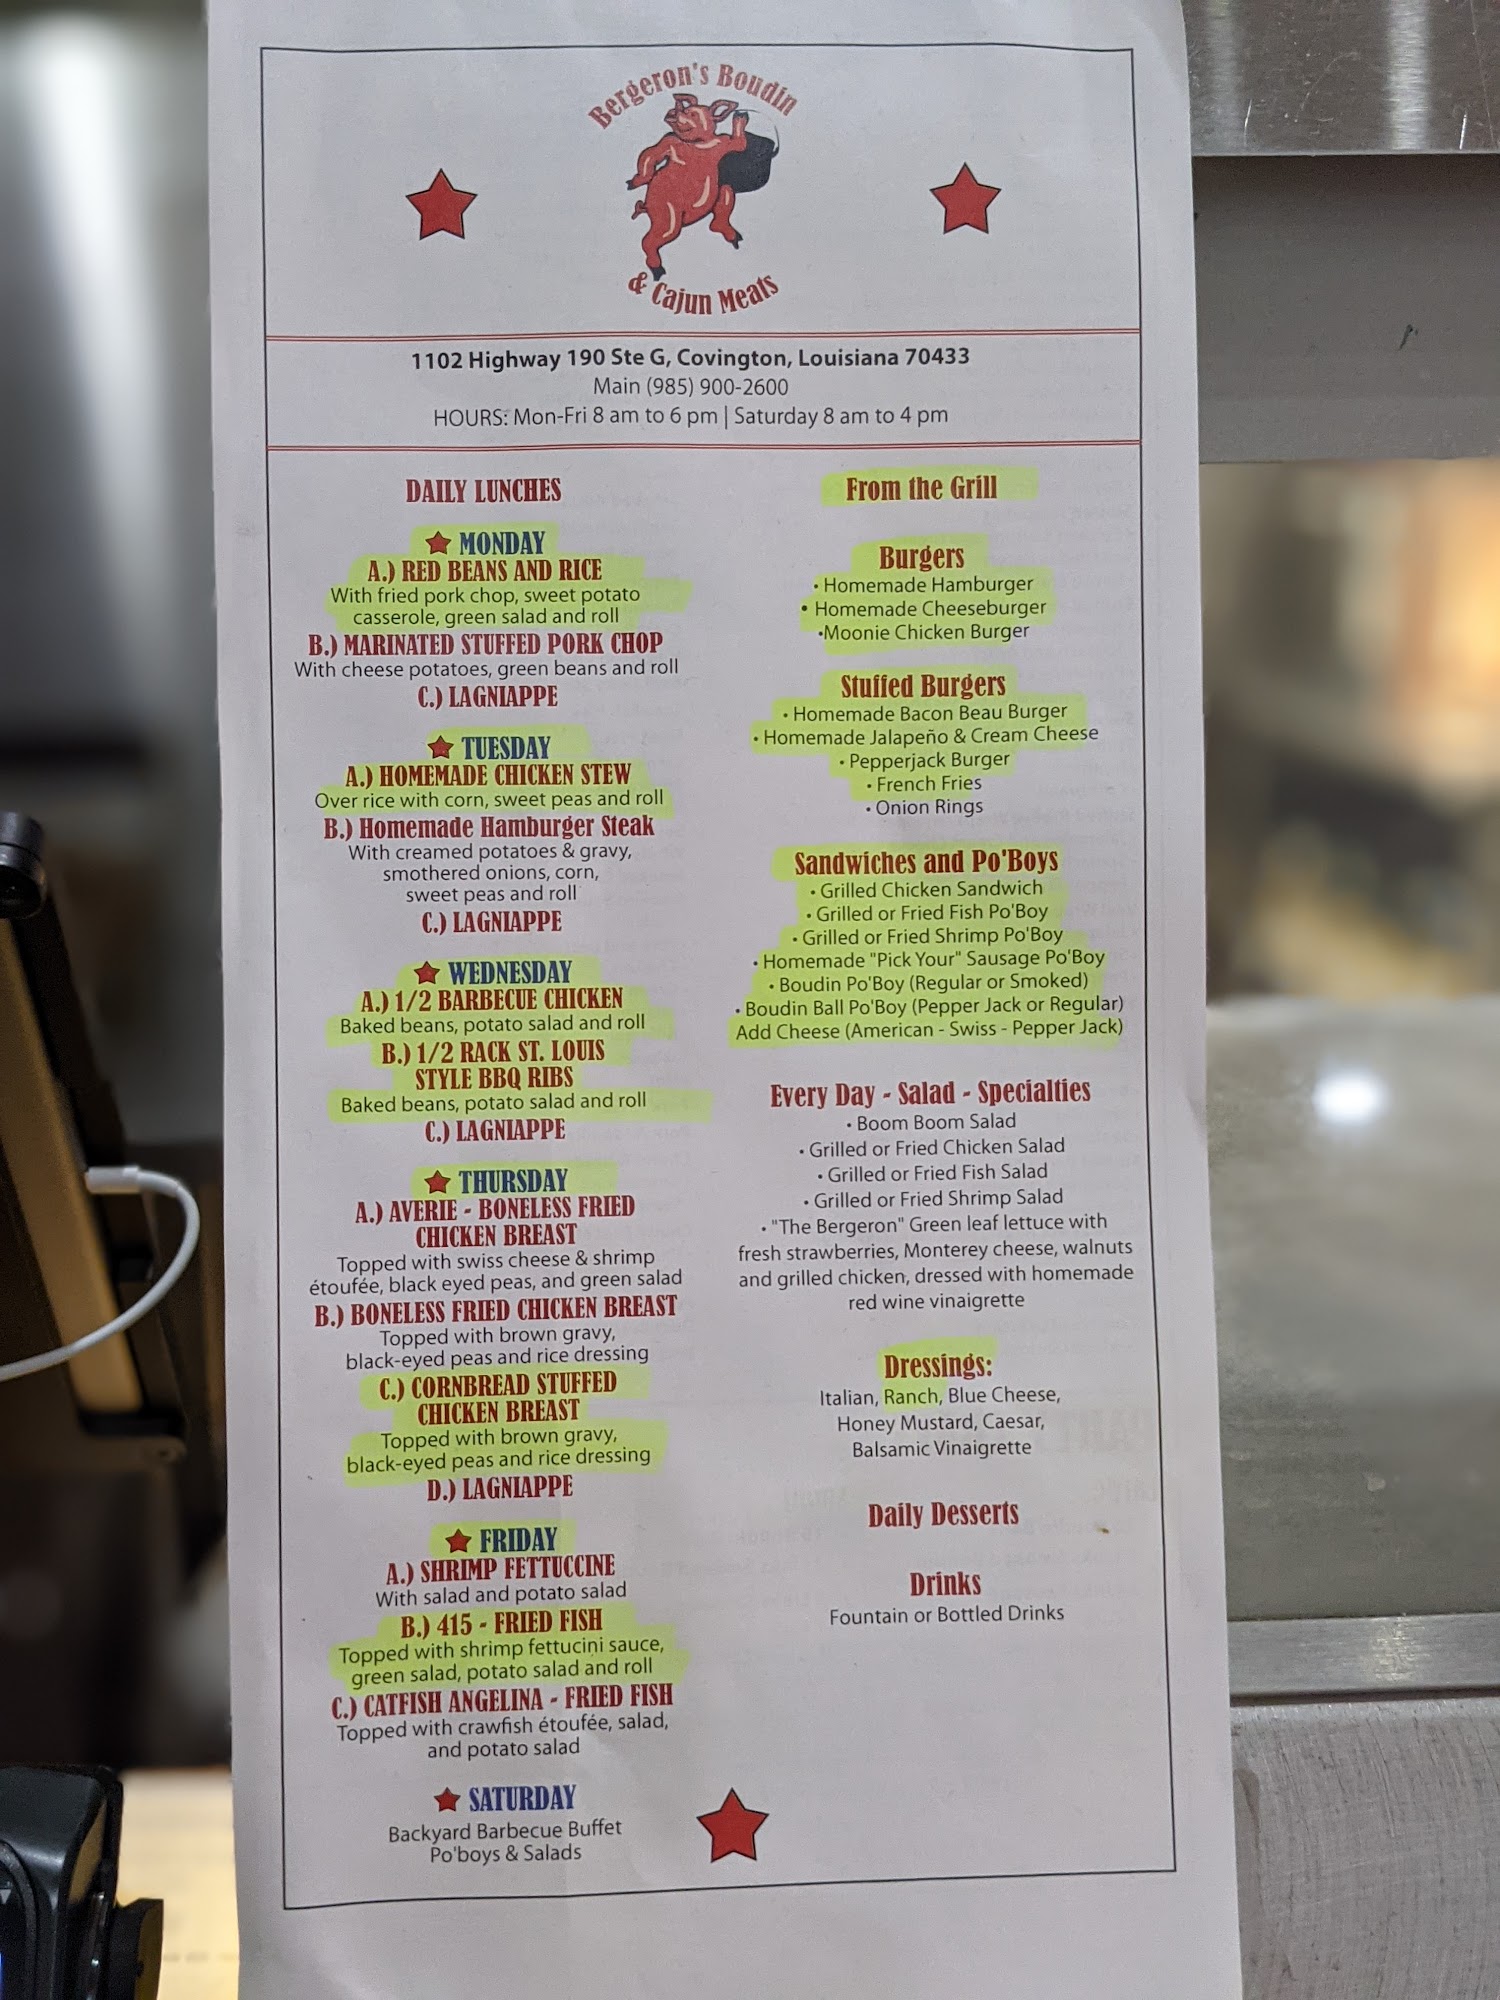 Bergeron's Boudin
& Cajun Meats
1102 Highway 190 Ste G, Covington, Louisiana 70433
Main (985) 900-2600
HOURS: Mon-Fri 8 am to 6 pm | Saturday 8 am to 4 pm
DAILY LUNCHES
MONDAY
A.) RED BEANS AND RICE
With fried pork chop, sweet potato
casserole, green salad and roll
B.) MARINATED STUFFED PORK CHOP
With cheese potatoes, green beans and roll
C.) LAGNIAPPE
TUESDAY
A.) HOMEMADE CHICKEN STEW
Over rice with corn, sweet peas and roll
B.) Homemade Hamburger Steak
With creamed potatoes & gravy,
smothered onions, corn,
sweet peas and roll
C.) LAGNIAPPE
WEDNESDAY
A.) 1/2 BARBECUE CHICKEN
Baked beans, potato salad and roll
B.) 1/2 RACK ST. LOUIS
STYLE BBQ RIBS
Baked beans, potato salad and roll
C.) LAGNIAPPE
THURSDAY
A.) AVERIE - BONELESS FRIED
CHICKEN BREAST
Topped with swiss cheese & shrimp
étoufée, black eyed peas, and green salad
B.) BONELESS FRIED CHICKEN BREAST
Topped with brown gravy,
black-eyed peas and rice dressing
C.) CORNBREAD STUFFED
CHICKEN BREAST
Topped with brown gravy,
black-eyed peas and rice dressing
D.) LAGNIAPPE
FRIDAY
A.) SHRIMP FETTUCCINE
With salad and potato salad
B.) 415 - FRIED FISH
Topped with shrimp fettucini sauce,
green salad, potato salad and roll
C.) CATFISH ANGELINA - FRIED FISH
Topped with crawfish étoufée, salad,
and potato salad
SATURDAY
Backyard Barbecue Buffet
Po'boys & Salads
From the Grill
Burgers
• Homemade Hamburger
• Homemade Cheeseburger
•Moonie Chicken Burger
Stuffed Burgers
• Homemade Bacon Beau Burger
• Homemade Jalapeño & Cream Cheese
• Pepperjack Burger
• French Fries
• Onion Rings
Sandwiches and Po'Boys
• Grilled Chicken Sandwich
• Grilled or Fried Fish Po'Boy
• Grilled or Fried Shrimp Po'Boy
• Homemade "Pick Your" Sausage Po'Boy
• Boudin Po'Boy (Regular or Smoked)
• Boudin Ball Po'Boy (Pepper Jack or Regular)
Add Cheese (American - Swiss - Pepper Jack)
Every Day - Salad - Specialties
• Boom Boom Salad
• Grilled or Fried Chicken Salad
• Grilled or Fried Fish Salad
• Grilled or Fried Shrimp Salad
• "The Bergeron" Green leaf lettuce with
fresh strawberries, Monterey cheese, walnuts
and grilled chicken, dressed with homemade
red wine vinaigrette
Dressings:
Italian, Ranch, Blue Cheese,
Honey Mustard, Caesar,
Balsamic Vinaigrette
Daily Desserts
Drinks
Fountain or Bottled Drinks